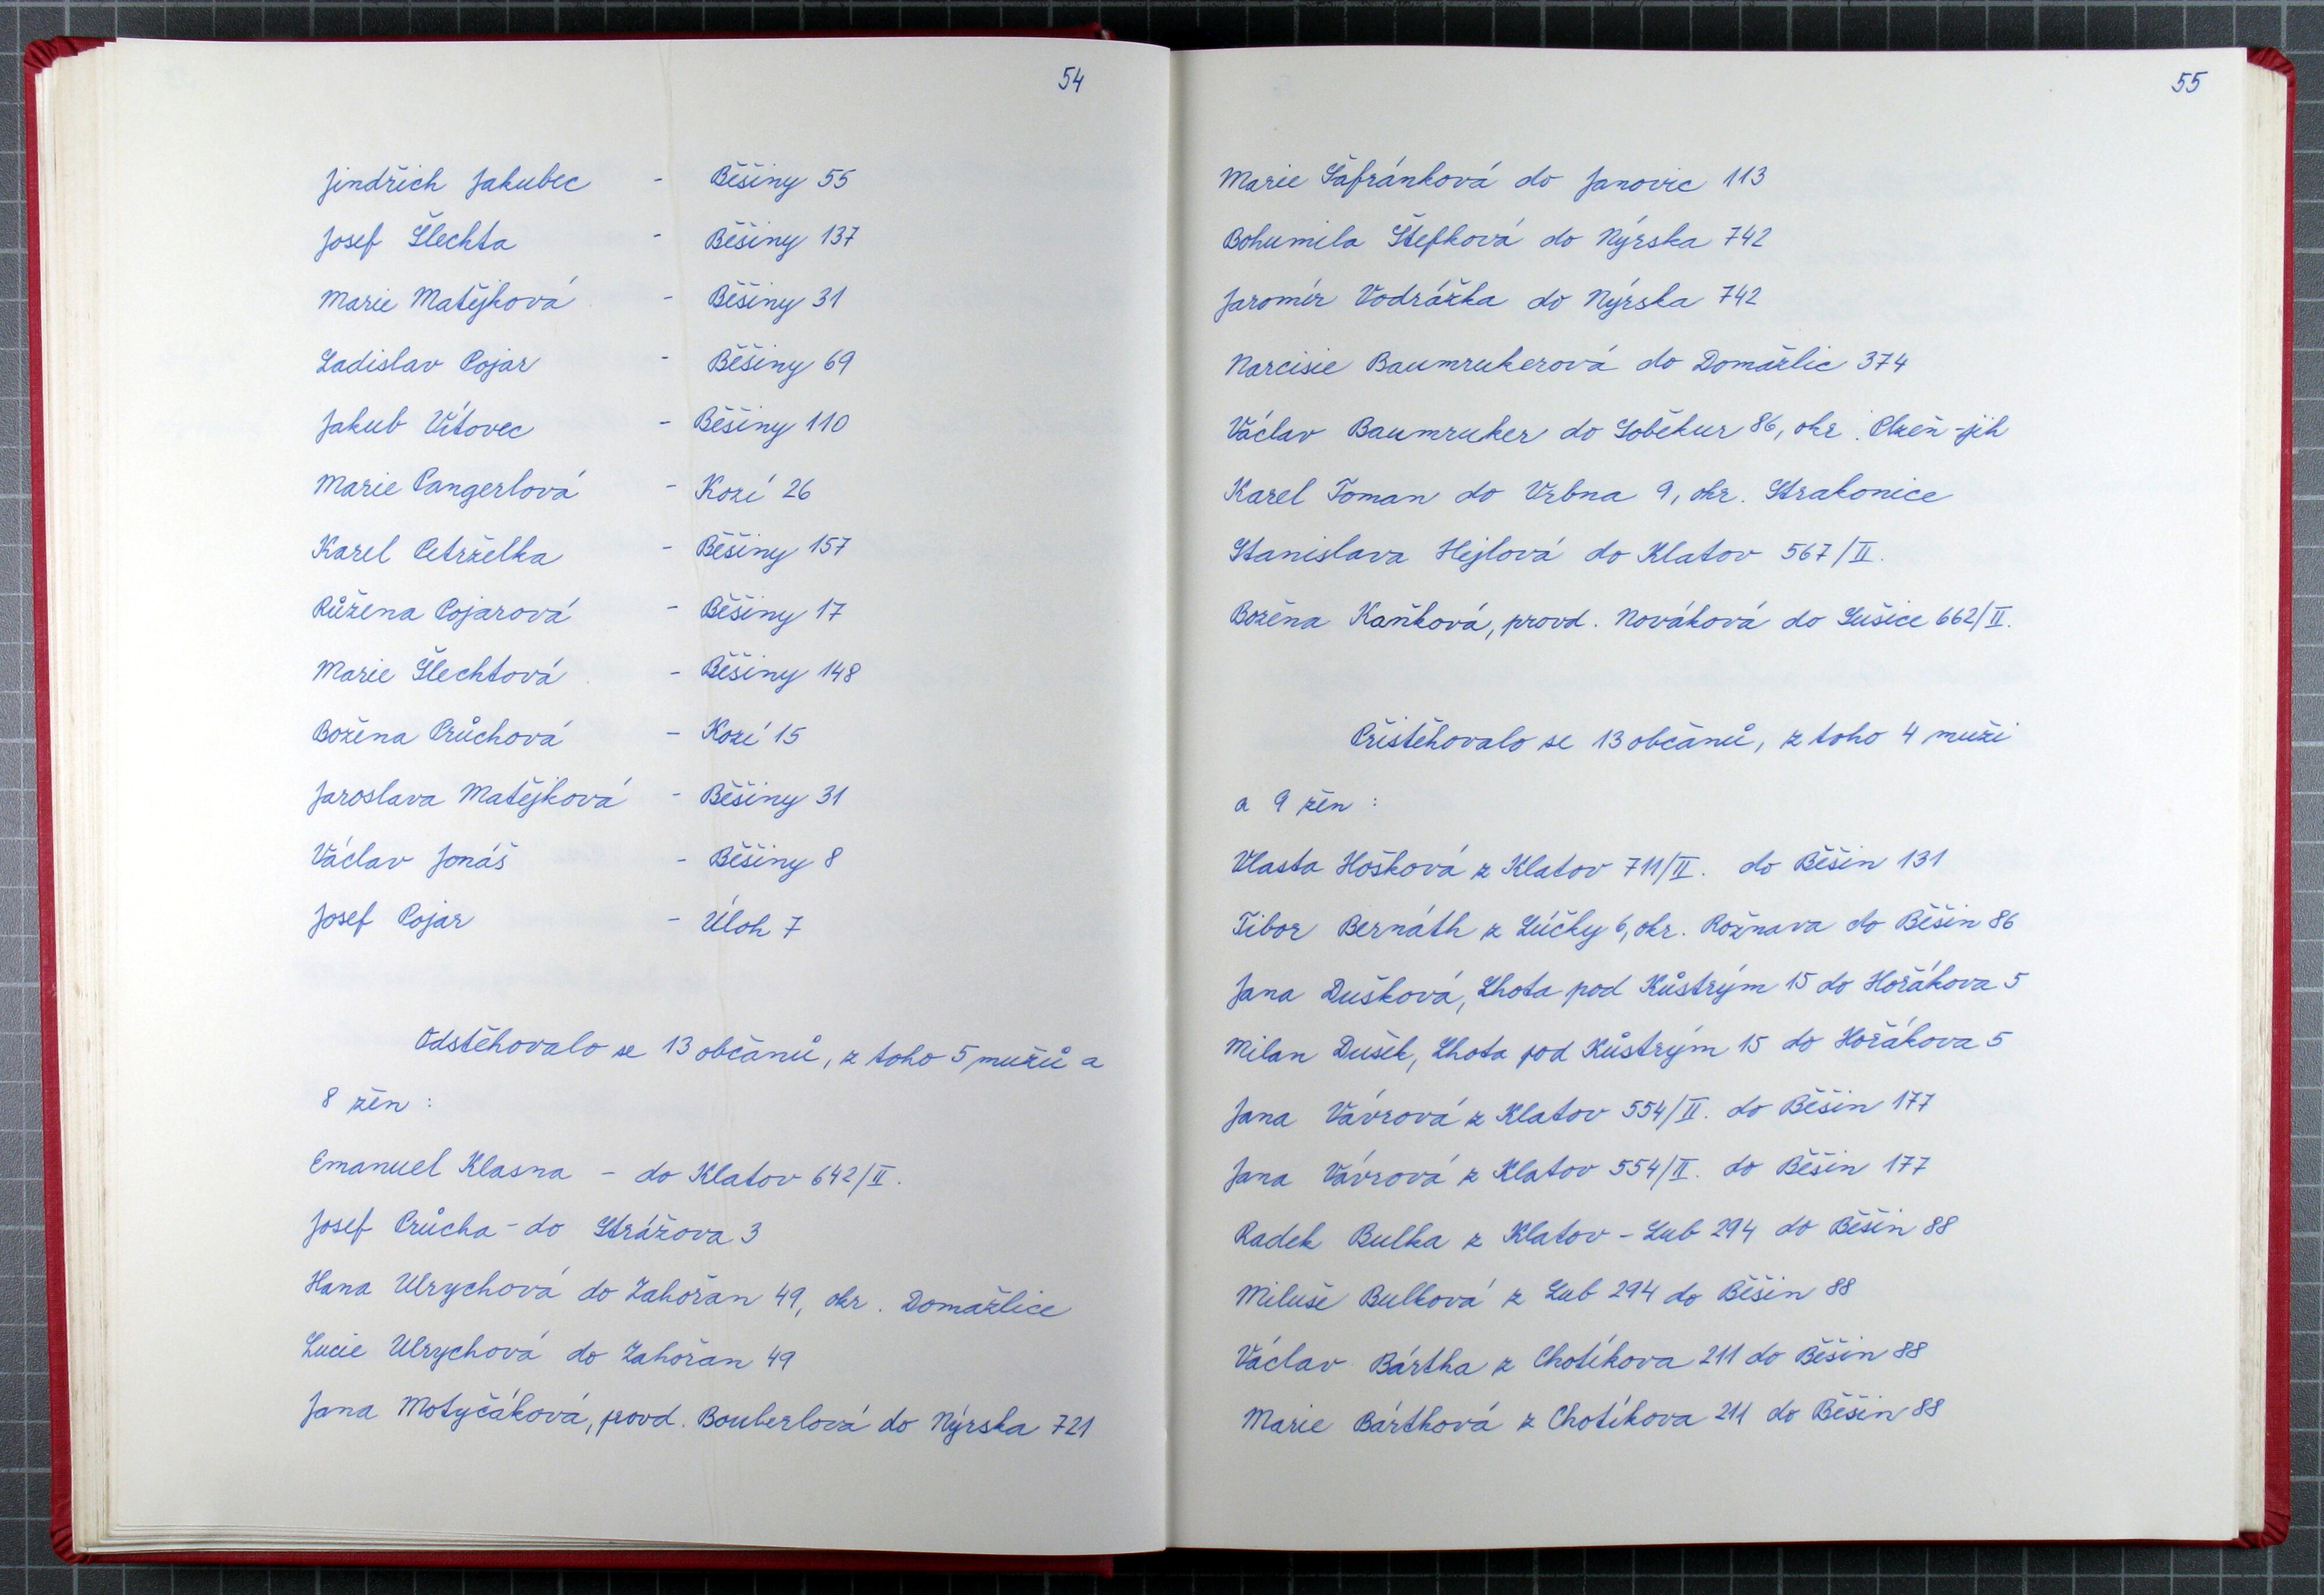 54
Jindřich Jakubec - Běšiny 55
Josef Šlechta - Běšiny 137
Marie Matějková - Běšiny 31
Ladislav Pojar - Běšiny 69
Jakub Vítovec - Běšiny 110
Marie Pangerlová - Kozí 26
Karel Petrželka - Běšiny 157
Růžena Pojarová - Běšiny 17
Marie Šlechtová - Běšiny 148
Božena Průchová - Kozí 15
Jaroslava Matějková - Běšiny 31
Václav Jonáš - Běšiny 8
Josef Pojar - Úloh 7
Odstěhovalo se 13 občanů, z toho 5 mužů a
8 žen :
Emanuel Klasna - do Klatov 642/II.
Josef Průcha - do Strážova 3
Hana Ulrychová do Zahořan 49, okr. Domažlice
Lucie Ulrychová do Zahořan 49
Jana Motyčáková, provd. Bouberlová do Nýrska 721
55
Marie Šafránková do Janovic 113
Bohumila Štefková do Nýrska 742
Jaromír Vodrážka do Nýrska 742
Narcisie Baumrukerová do Domažlic 374
Václav Baumruker do Soběkur 86, okr. Plzeň-jih
Karel Toman do Vrbna 9, okr. Strakonice
Stanislava Hejlová do Klatov 567/II.
Božena Kaňková, provd. Nováková do Sušice 662/II.
Přistěhovalo se 13 občanů, z toho 4 muži
a 9 žen :
Vlasta Hošková z Klatov 711/II. do Běšin 131
Tibor Bernáth z Lúčky 6, okr. Rožnava do Běšin 86
Jana Dušková, Lhota pod Kůstrým 15 do Hořákova 5
Milan Dušek, Lhota pod Kůstrým 15 do Hořákova 5
Jana Vávrová z Klatov 554/II. do Běšin 177
Jana Vávrová z Klatov 554/II. do Běšin 177
Radek Bulka z Klatov - Lub 294 do Běšin 88
Miluše Bulková z Lub 294 do Běšin 88
Václav Bártha z Chotíkova 211 do Běšin 88
Marie Bárthová z Chotíkova 211 do Běšin 88